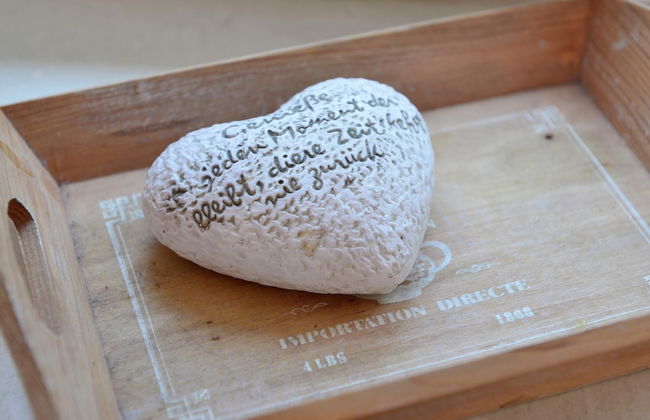 Genieße
jeden Moment der
bleibt, diese Zeit kehrt
nie zurück
IMPORTATION DIRECTE
4 LBS